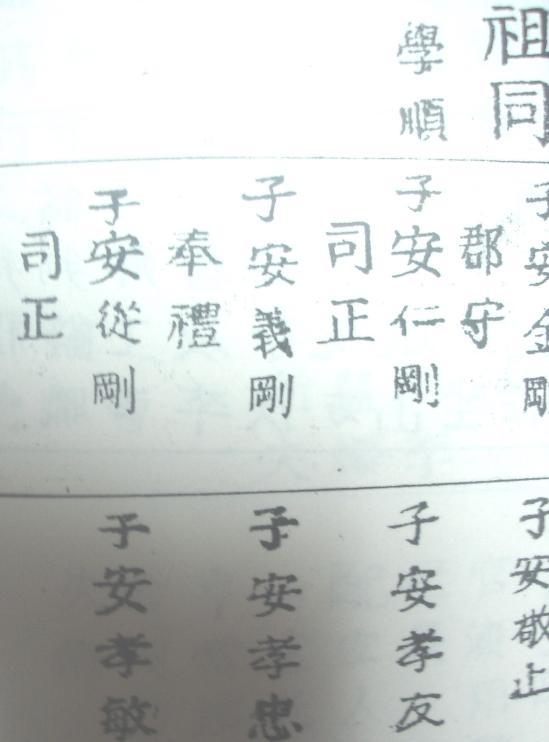 祖同
學順
子安金剛
郡守
子安仁剛
司正
子安義剛
奉禮
子安從剛
司正
子安敬止
子安孝友
子安孝忠
子安孝敏